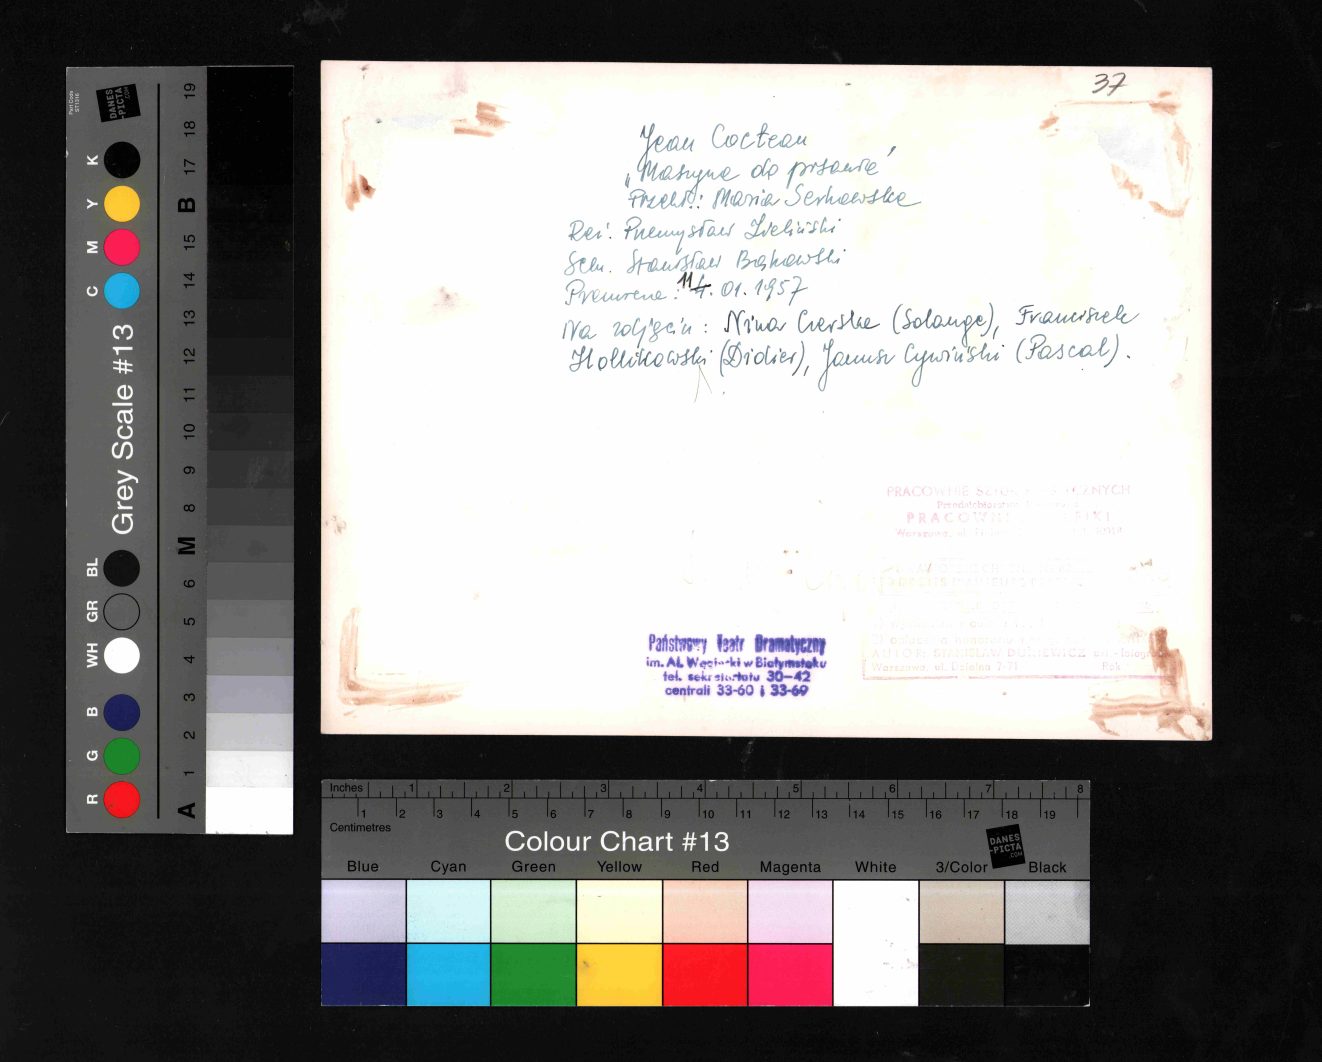 37
Jean Cocteau
„Maszyna do pisania”
Przekł.: Maria Serkowska
Reż. Przemysław Zieliński
Scen. Stanisław Bąkowski
Premiera: 11.01.1957
Na zdjęciu: Nina Czerska (Solange), Franciszek
Hollikowski (Didier), Janusz Cywiński (Pascal).
PRACOWNIE
PRACOWNI
Warszawa, ul.
AUTOR: STANISŁAW art.-fotograf
Warszawa, ul. Dzielna 7-71 Rok
Państwowy Teatr Dramatyczny
im. Al. Węgierki w Białymstoku
tel. sekretariatu 30—42
centrali 33-60 i 33-69
Grey Scale #13
DANES
-PICTA
.COM
K Y M C BL GR WH B G R
A 1 2 3 4 5 6 M 8 9 10 11 12 13 14 15 B 17 18 19
Inches 1 2 3 4 5 6 7 8
Centimetres 1 2 3 4 5 6 7 8 9 10 11 12 13 14 15 16 17 18 19
Colour Chart #13
DANES
-PICTA
.COM
Blue Cyan Green Yellow Red Magenta White 3/Color Black